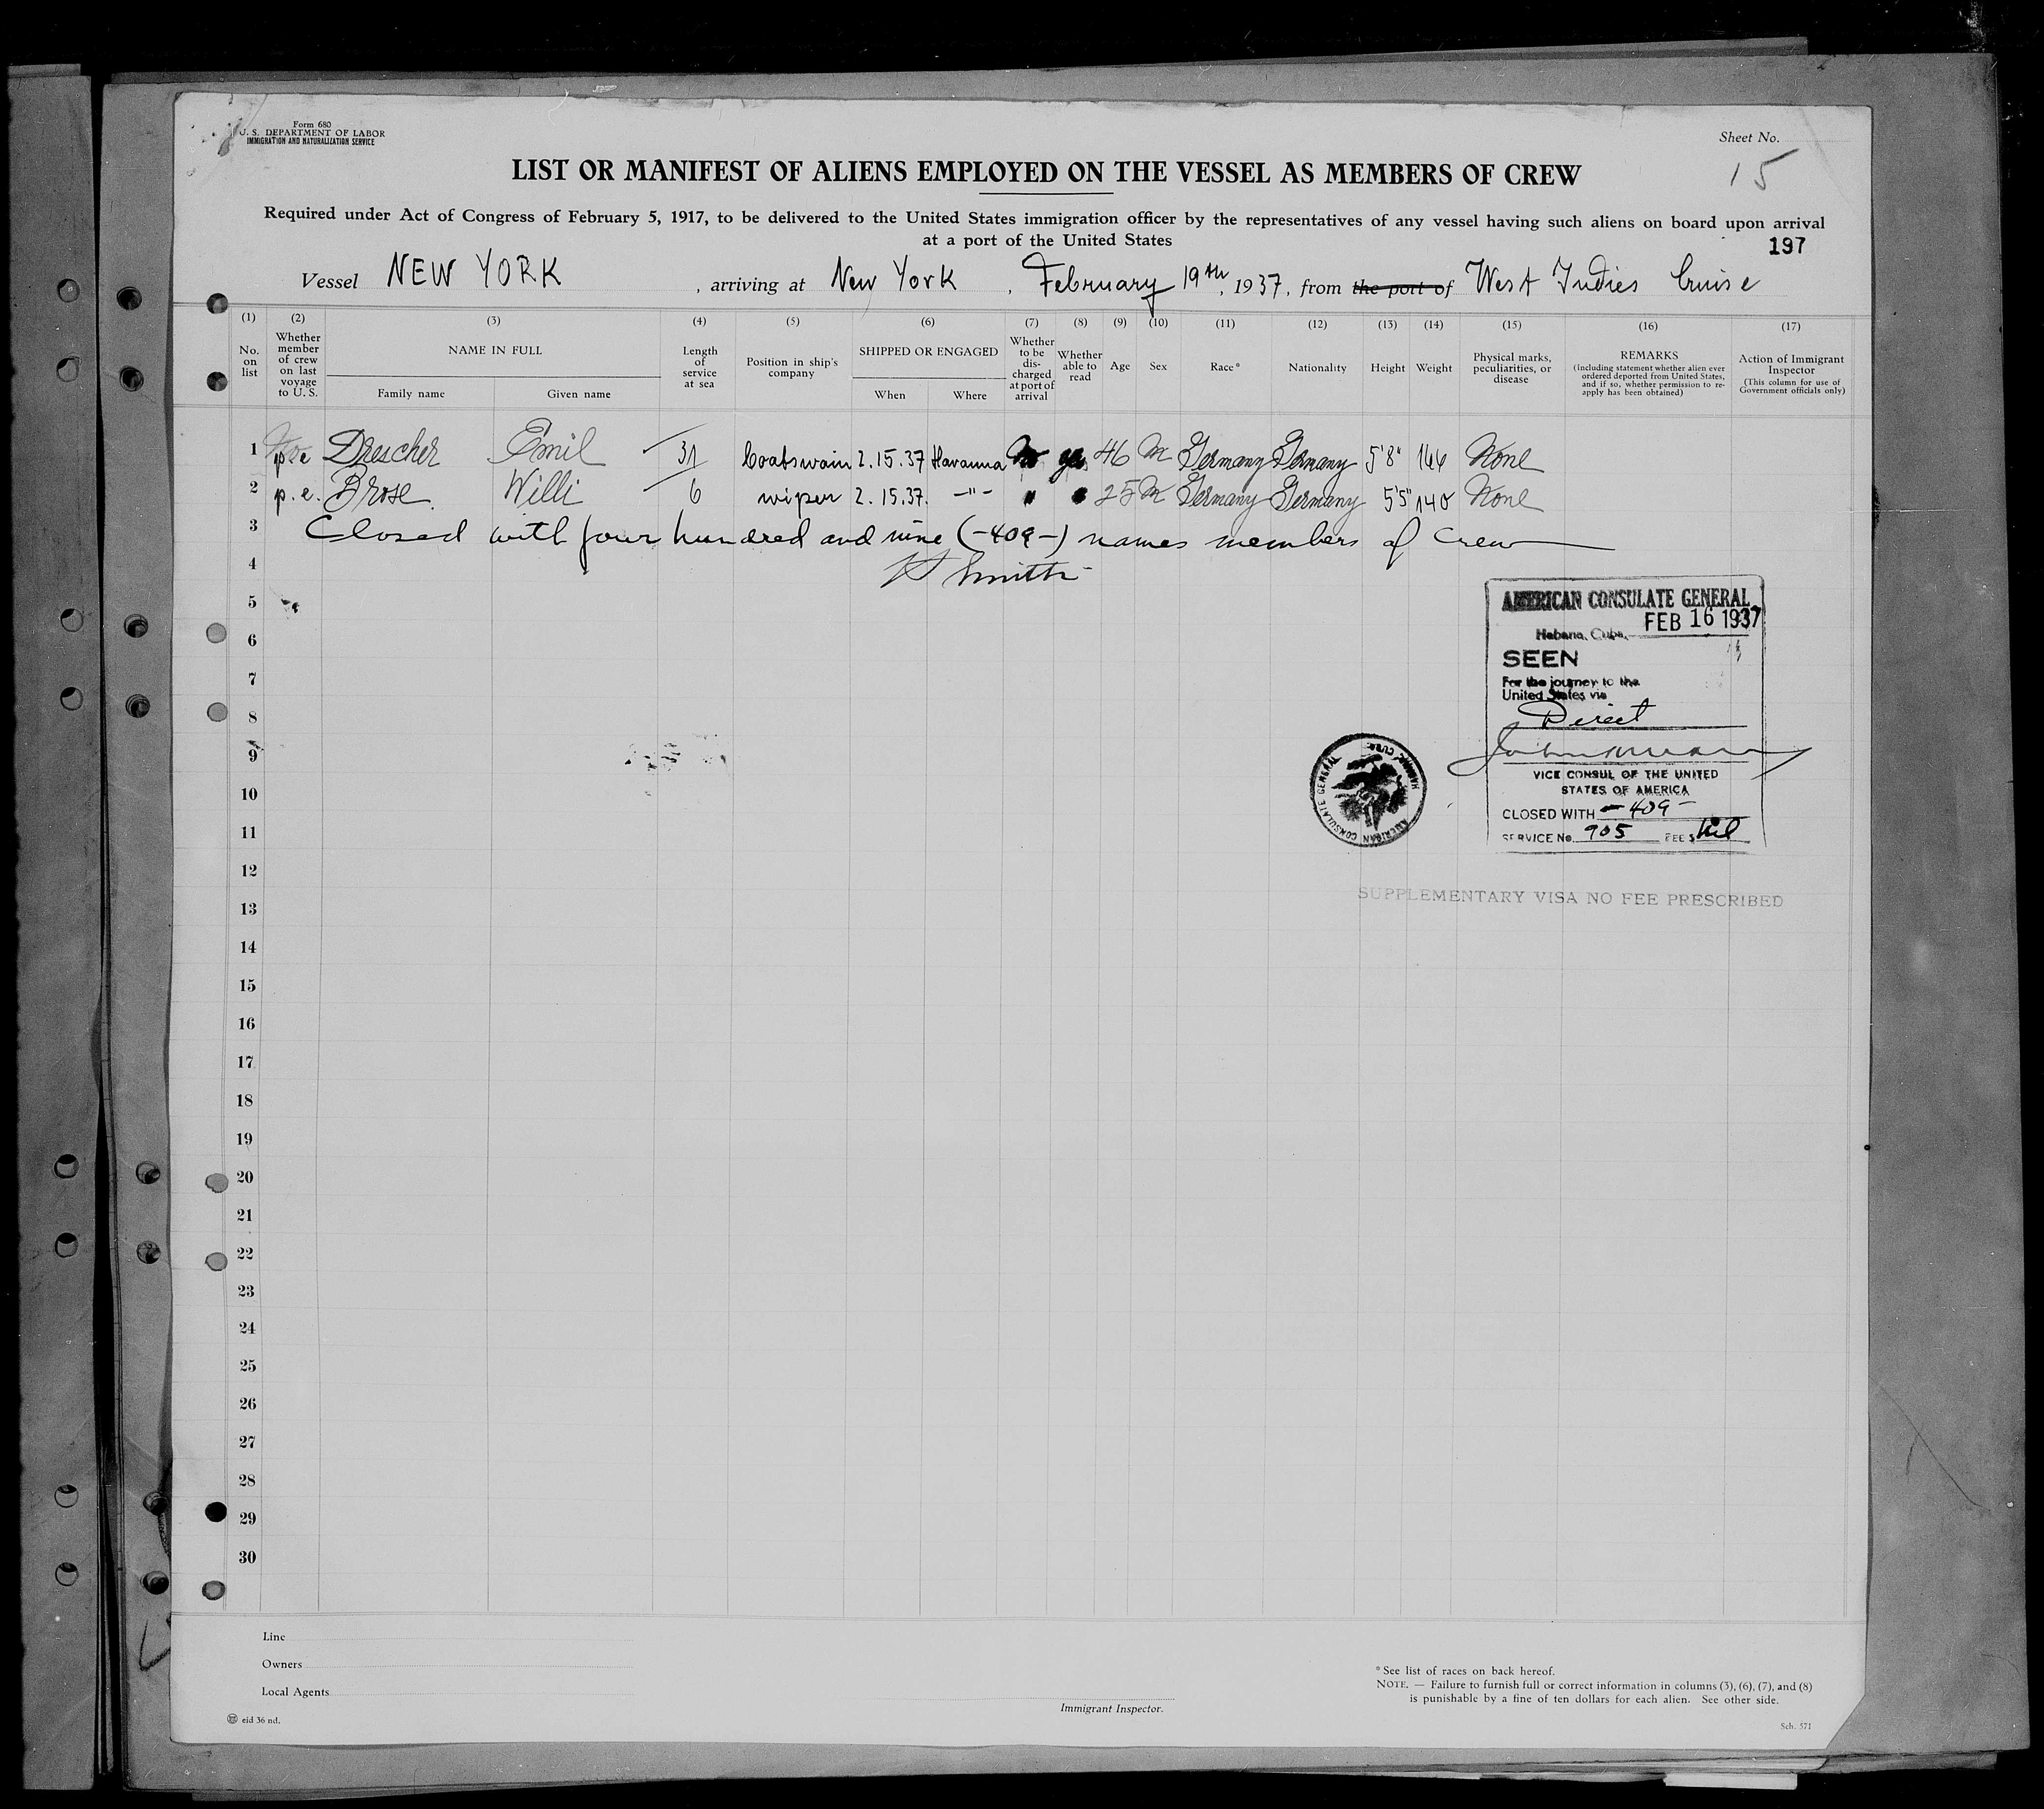 Form 680
U. S. DEPARTMENT OF LABOR
IMMIGRATION AND NATURALIZATION SERVICE
Sheet No.
15
LIST OR MANIFEST OF ALIENS EMPLOYED ON THE VESSEL AS MEMBERS OF CREW
Required under Act of Congress of February 5, 1917, to be delivered to the United States immigration officer by the representatives of any vessel having such aliens on board upon arrival
at a port of the United States
197
Vessel NEW YORK , arriving at New York , February 19th, 1937, from the port of West Indies Cruise
(1) (2) (3) (4) (5) (6) (7) (8) (9) (10) (11) (12) (13) (14) (15) (16) (17)
No. on list
Whether member of crew on last voyage to U. S.
NAME IN FULL
Family name
Given name
Length of service at sea
Position in ship's company
SHIPPED OR ENGAGED
When
Where
Whether to be discharged at port of arrival
Whether able to read
Age
Sex
Race*
Nationality
Height
Weight
Physical marks, peculiarities, or disease
REMARKS
(Including statement whether alien ever ordered deported from United States, and if so, whether permission to re-apply has been obtained)
Action of Immigrant Inspector
(This column for use of Government officials only)
1 Drescher Emil 31 boatswain 2.15.37 Havanna No yes 46 M Germany Germany 5'8" None
2 p.e. Brose Willi 6 wiper 2.15.37. -"- " " 25 M Germany Germany 5'5" 140 None
3 Closed with four hundred and nine (-409-) names members of Crew
4 Smith
5
6
7
8
9
10
11
12
13
14
15
16
17
18
19
20
21
22
23
24
25
26
27
28
29
30
AMERICAN CONSULATE GENERAL
FEB 16 1937
Habana, Cuba,
SEEN
For the journey to the
United States via
Direct
VICE CONSUL OF THE UNITED
STATES OF AMERICA
CLOSED WITH -409-
SERVICE No. 905 FEE $ Nil
AMERICAN CONSULATE GENERAL HABANA, CUBA
SUPPLEMENTARY VISA NO FEE PRESCRIBED
Line
Owners
Local Agents
Immigrant Inspector.
* See list of races on back hereof.
NOTE. — Failure to furnish full or correct information in columns (3), (6), (7), and (8)
is punishable by a fine of ten dollars for each alien. See other side.
eid 36 nd.
Sch. 571